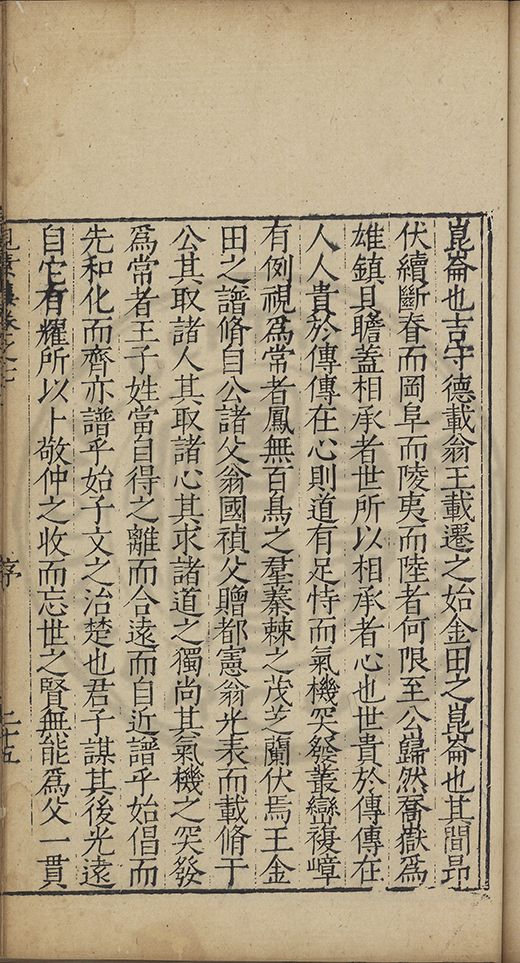 崑崙也吉守德載翁王載遷之始金田之崑崙也其間昂
伏續斷春而岡阜而陵夷而陸者何限至公歸然喬嶽為
雄鎮具瞻盖相承者世所以相承者心也世貴於傳傳在
人人貴於傳傳在心則道有足恃而氣機突發叢巒複嶂
有例視為常者鳳無百鳥之羣蓁棘之茂芝蘭伏焉王金
田之譜脩自公諸父翁國禎父贈都憲翁光表而載脩于
公其取諸人其取諸心其求諸道之獨尚其氣機之突發
為常者王子姓當自得之離而合遠而自近譜乎始倡而
先和化而齊亦譜乎始子文之治楚也君子謀其後光遠
自它有耀所以卜敬仲之收而忘世之賢無能為父一貫
序
二十五